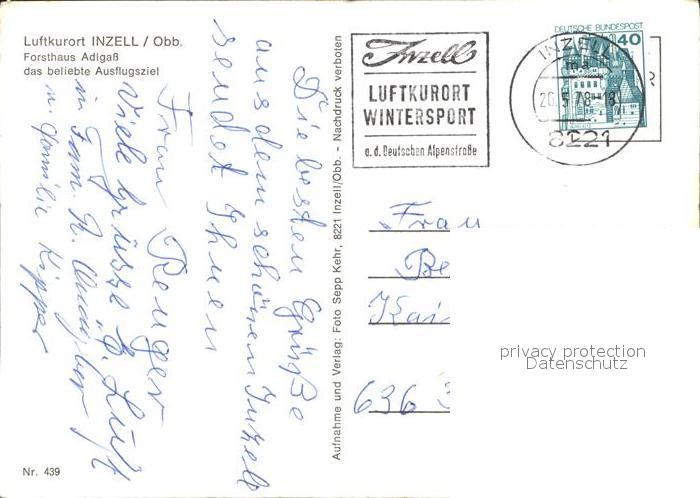 Luftkurort INZELL / Obb.
Forsthaus Adlgaß
das beliebte Ausflugsziel
Die besten Grüße
aus dem schönen Inzell
sendet Ihnen
Frau Renger
Viele Grüsse
u. Familie Kipper
Nr. 439
Aufnahme und Verlag: Foto Sepp Kehr, 8221 Inzell/Obb. - Nachdruck verboten
Inzell
LUFTKURORT
WINTERSPORT
a.d. Deutschen Alpenstraße
DEUTSCHE BUNDESPOST
40
INZELL
26.5.78-18
8221
Frau
Be
Kai
636
privacy protection
Datenschutz